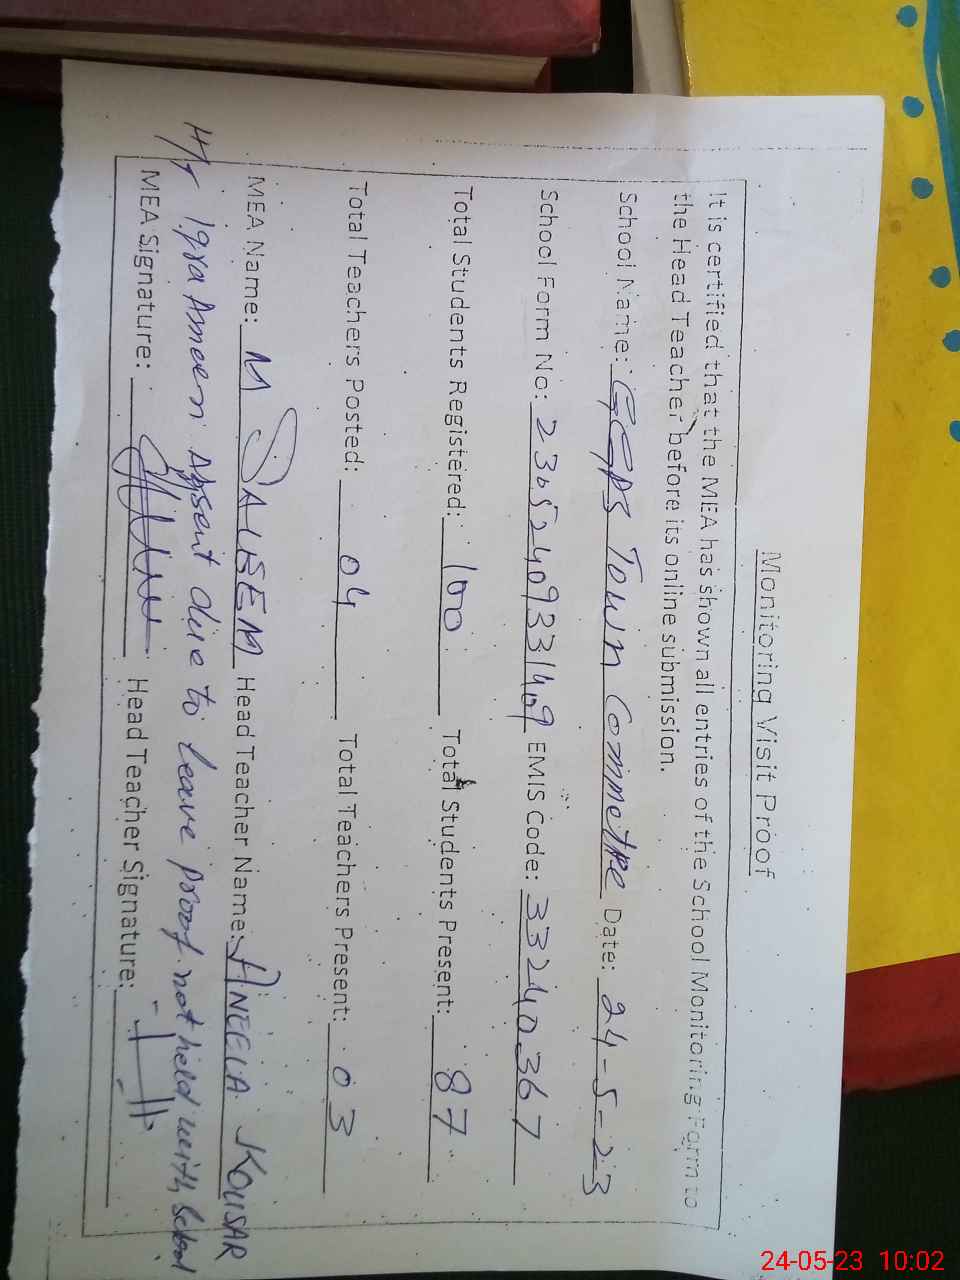 Monitoring Visit Proof
It is certified that the MEA has shown all entries of the School Monitoring Form to
the Head Teacher before its online submission.
School Name: GGPS Town Commettee Date: 24-5-23
School Form No: 23052409331409 EMIS Code: 33240367
Total Students Registered: 100 Total Students Present: 87
Total Teachers Posted: 04 Total Teachers Present: 03
MEA Name: M SALEEM Head Teacher Name: ANEELA KOUSAR
H/T Iqra Ameen Absent due to leave proof not held with School
MEA Signature: Head Teacher Signature:
24-05-23 10:02